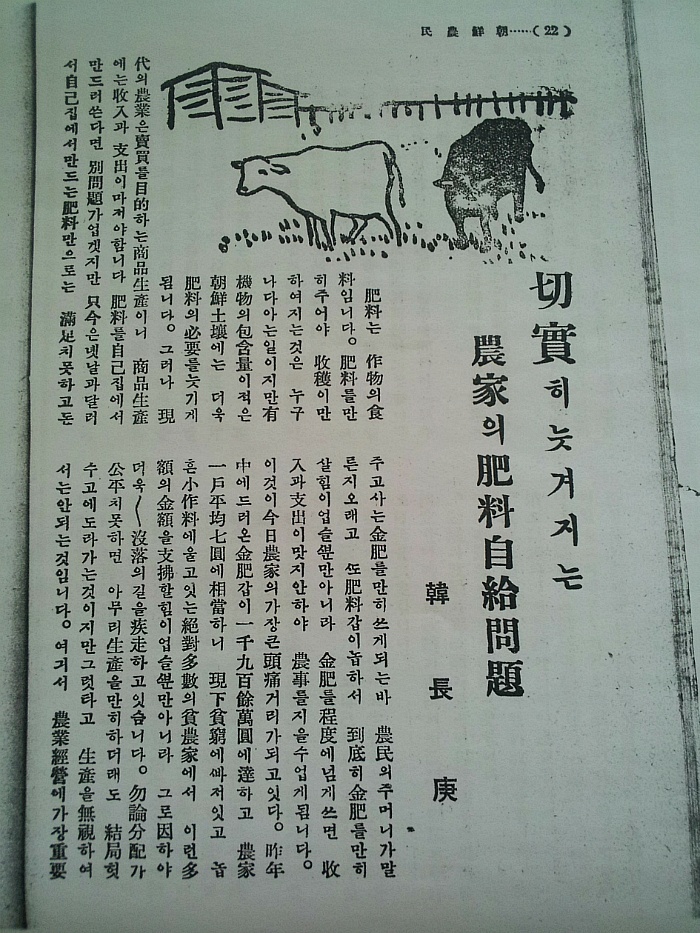 民農鮮朝……(22)
切實히늣겨지는
農家의肥料自給問題
韓長庚
肥料는 作物의食
料임니다。肥料를만
히주어야 收穫이만
하여지는것은 누구
나다아는일이지만有
機物의包含量이적은
朝鮮土壤에는 더욱
肥料의必要를늣기게
됨니다。그러나 現
代의農業은賣買를目的하는商品生產이니 商品生產
에는收入과支出이마저야합니다 肥料를自己집에서
만드러쓴다면 別問題가업겟지만 只今은녯날과달러
서自己집에서만드는肥料만으로는 滿足치못하고돈
주고사는金肥를만히쓰게되는바 農民의주머니가말
른지오래고 또肥料갑이놉하서 到底히金肥를만히
살힘이업슬뿐만아니라 金肥를程度에넘게쓰면 收
入과支出이맛지안하야 農事를지을수업게됨니다。
이것이今日農家의가장큰頭痛거리가되고잇다。昨年
中에드러온金肥갑이一千九百餘萬圓에達하고 農家
一戶平均七圓에相當하니 現下貧窮에빠저잇고 놉
흔小作料에울고잇는絕對多數의貧農家에서 이런多
額의金額을支拂할힘이업슬뿐만아니라 그로因하야
더욱〱沒落의길을疾走하고잇습니다。勿論分配가
公平치못하면 아무리生產을만히하더래도 結局헛
수고에도라가는것이지만그럿타고 生產을無視하여
서는안되는것입니다。여긔서 農業經營에가장重要